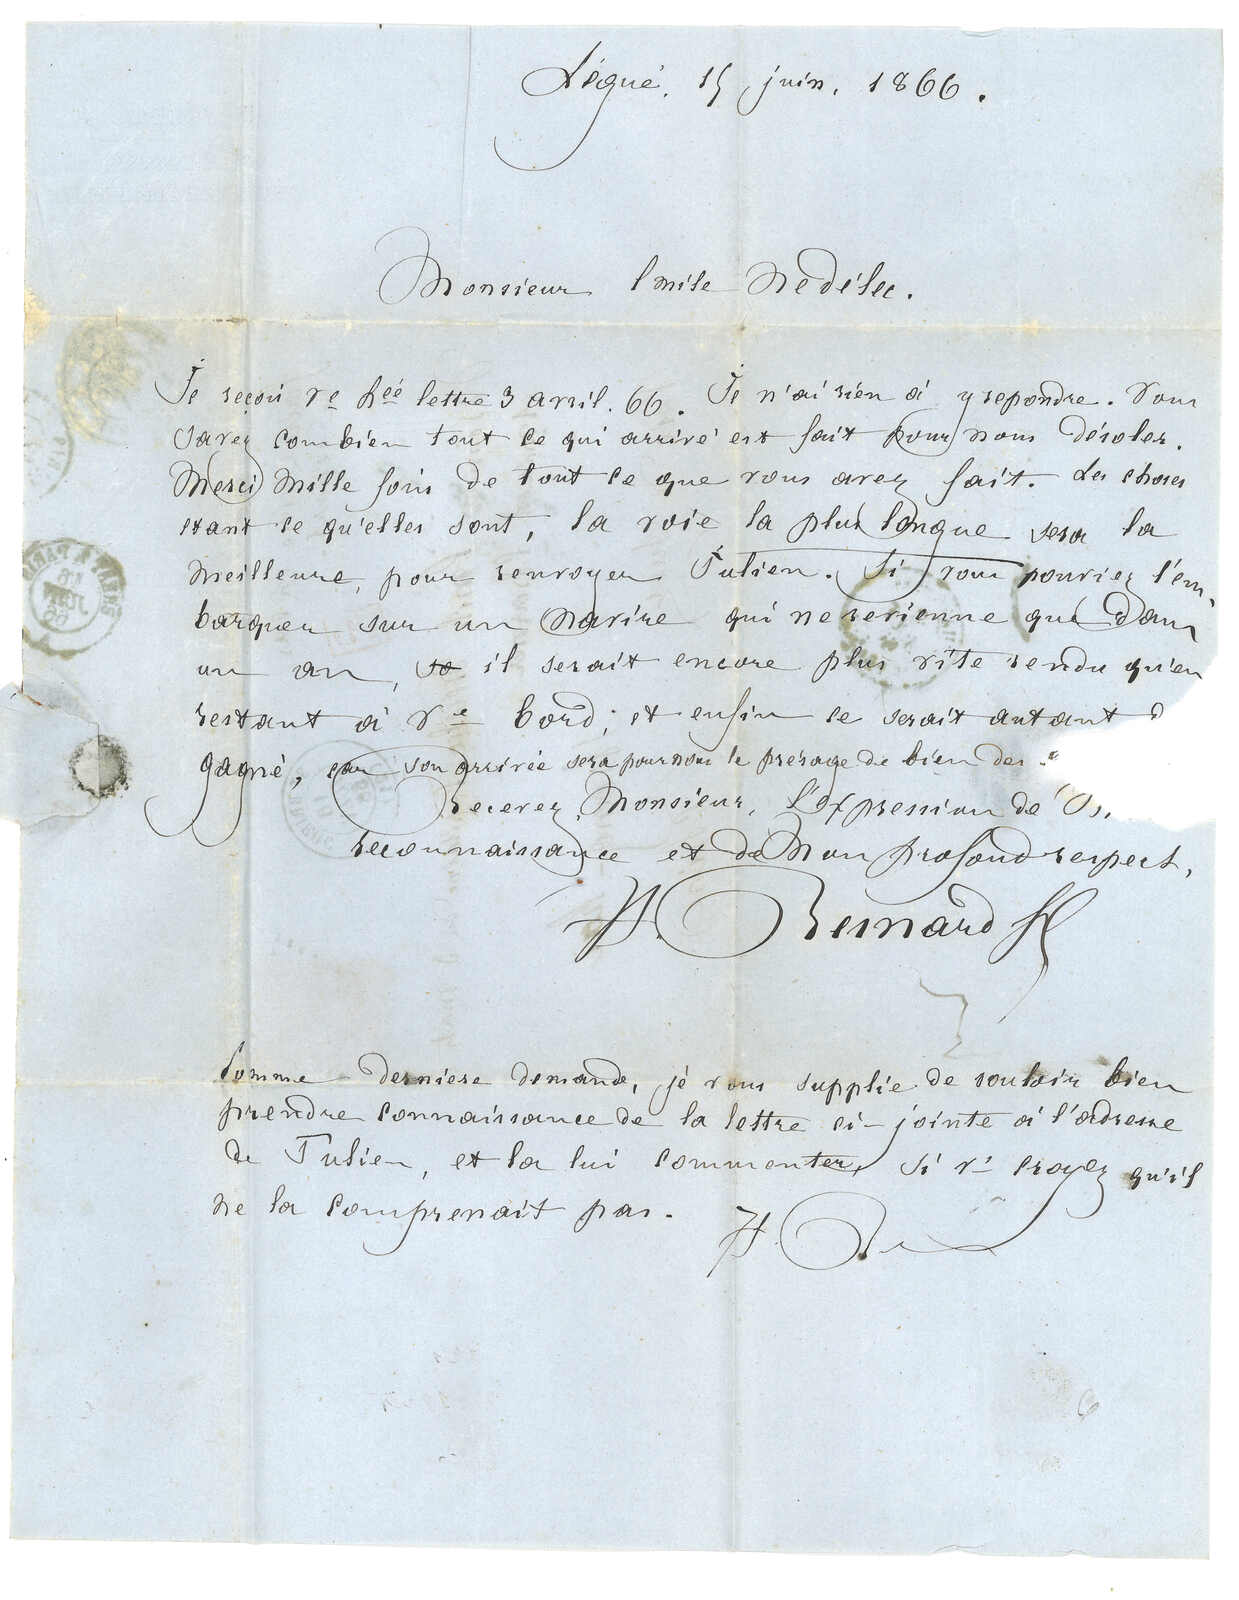 Légué, 15 juin, 1866.
Monsieur Emile Nedélec.
Je reçois Vre hrée lettre 3 avril. 66. Je n'ai rien à y repondre. Vous
savez combien tout ce qui arrive est fait pour nous désoler.
Merci mille fois de tout ce que vous avez fait. Les choses
étant ce qu'elles sont, la voie la plus longue sera la
meilleure, pour renvoyer Julien. Si vous pouviez l'em-
barquer sur un navire qui ne revienne que dans
un an, il serait encore plus vite rendu qu'en
restant à Vre bord; et enfin ce serait autant de
gagné, car son arrivée sera pour nous le présage de bien des
Recevez, Monsieur, l'expression de
reconnaissance et de mon profond respect,
H. Bernard fs
Comme derniere demande, je vous supplie de vouloir bien
prendre connaissance de la lettre ci-jointe à l'adresse
de Julien, et la lui commenter, si vs croyez qu'il
ne la comprenait pas.
H. B